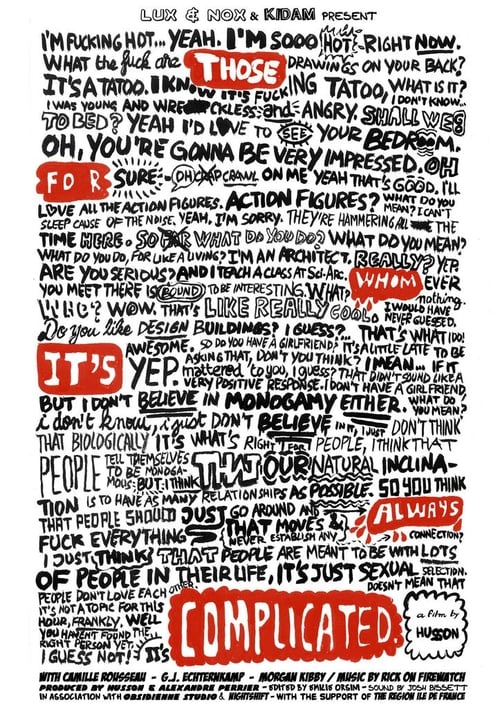 LUX & NOX & KIDAM PRESENT
I'M FUCKING HOT... YEAH. I'M SOOO HOT RIGHT NOW.
WHAT the fuck are THOSE DRAWINGS ON YOUR BACK?
IT'S A TATOO. I KNOW IT'S FUCKING TATOO, WHAT IS IT?
I DON'T KNOW...
I WAS YOUNG AND WRECKLESS and ANGRY. SHALL WE GO
TO BED? YEAH I'D LOVE TO SEE YOUR BEDROOM.
OH, YOU'RE GONNA BE VERY IMPRESSED. OH
FOR SURE OH CRAP CRAWL ON ME YEAH THAT'S GOOD. I'LL
LOVE ALL THE ACTION FIGURES. ACTION FIGURES? WHAT DO YOU MEAN? I CAN'T
SLEEP CAUSE OF THE NOISE. YEAH, I'M SORRY. THEY'RE HAMMERING ALL THE
TIME HERE. SO FAR WHAT DO YOU DO? WHAT DO YOU MEAN?
WHAT DO YOU DO, FOR LIKE A LIVING? I'M AN ARCHITECT. REALLY? YEP.
ARE YOU SERIOUS? AND I TEACH A CLASS AT SCI-ARC. WHOM EVER
YOU MEET THERE IS BOUND TO BE INTERESTING. WHAT? nothing.
WOW. THAT'S LIKE REALLY COOL. I WOULD HAVE NEVER GUESSED.
Do you like DESIGN BUILDINGS? I GUESS?... THAT'S WHAT I DO!
IT'S AWESOME. SO DO YOU HAVE A GIRLFRIEND? IT'S A LITTLE LATE TO BE
YEP. ASKING THAT, DON'T YOU THINK? I MEAN... IF IT
mattered to you, I guess? THAT DIDN'T SOUND LIKE A
VERY POSITIVE RESPONSE. I DON'T HAVE A GIRLFRIEND
BUT I DON'T BELIEVE IN MONOGAMY EITHER. WHAT DO YOU MEAN?
i don't know, i just DON'T BELIEVE IN IT, I JUST DON'T THINK
THAT BIOLOGICALLY IT'S WHAT'S RIGHT FOR PEOPLE, I THINK THAT
PEOPLE TELL THEMSELVES TO BE MONOGAMOUS, BUT I THINK THAT OUR NATURAL INCLINA-
TION IS TO HAVE AS MANY RELATIONSHIPS AS POSSIBLE. SO YOU THINK
THAT PEOPLE SHOULD JUST GO AROUND AND ALWAYS
FUCK EVERYTHING THAT MOVES & NEVER ESTABLISH ANY CONNECTION?
I JUST THINK THAT PEOPLE ARE MEANT TO BE WITH LOTS
OF PEOPLE IN THEIR LIFE, IT'S JUST SEXUAL SELECTION.
DOESN'T MEAN THAT
PEOPLE DON'T LOVE EACH OTHER.
IT'S NOT A TOPIC FOR THIS
HOUR, FRANKLY. WELL
YOU HAVEN'T FOUND THE
RIGHT PERSON YET.
I GUESS NOT! IT'S
COMPLICATED.
a film by
HUSSON
WITH CAMILLE ROUSSEAU - G.J. ECHTERNKAMP - MORGAN KIBBY / MUSIC BY RICK ON FIREWATCH
PRODUCED BY HUSSON & ALEXANDRE PERRIER - EDITED BY EMILIE ORSINI - SOUND BY JOSH BISSETT
IN ASSOCIATION WITH OBSIDIENNE STUDIO & NIGHTSHIFT - WITH THE SUPPORT OF THE REGION ILE DE FRANCE